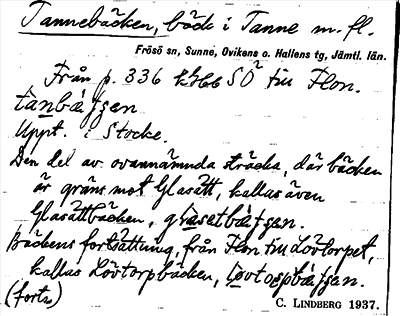 Tannebäcken, bäck i Tanne m. fl.
Frösö sn, Sunne, Ovikens o. Hallens tg, Jämtl. län.
Från p. 336 SÖ till Flon.
tanbäʃʃen.
Uppt. i Stocke.
Den del av ovannämnda sträcka, där bäcken
är gräns mot Glasätt, kallas även
Glasättbäcken, glasetbäʃʃen.
Bäckens fortsättning, från Flon till Lövtorpet,
kallas Lövtorpbäcken,
(forts)
C. LINDBERG 1937.